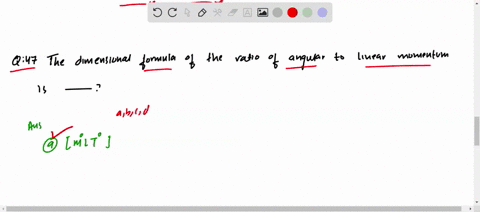 Q:47 The dimensional formula of the ratio of angular to linear momentum
is ___ ?
a,b,c,d
Ans
a [M⁰LT⁰]